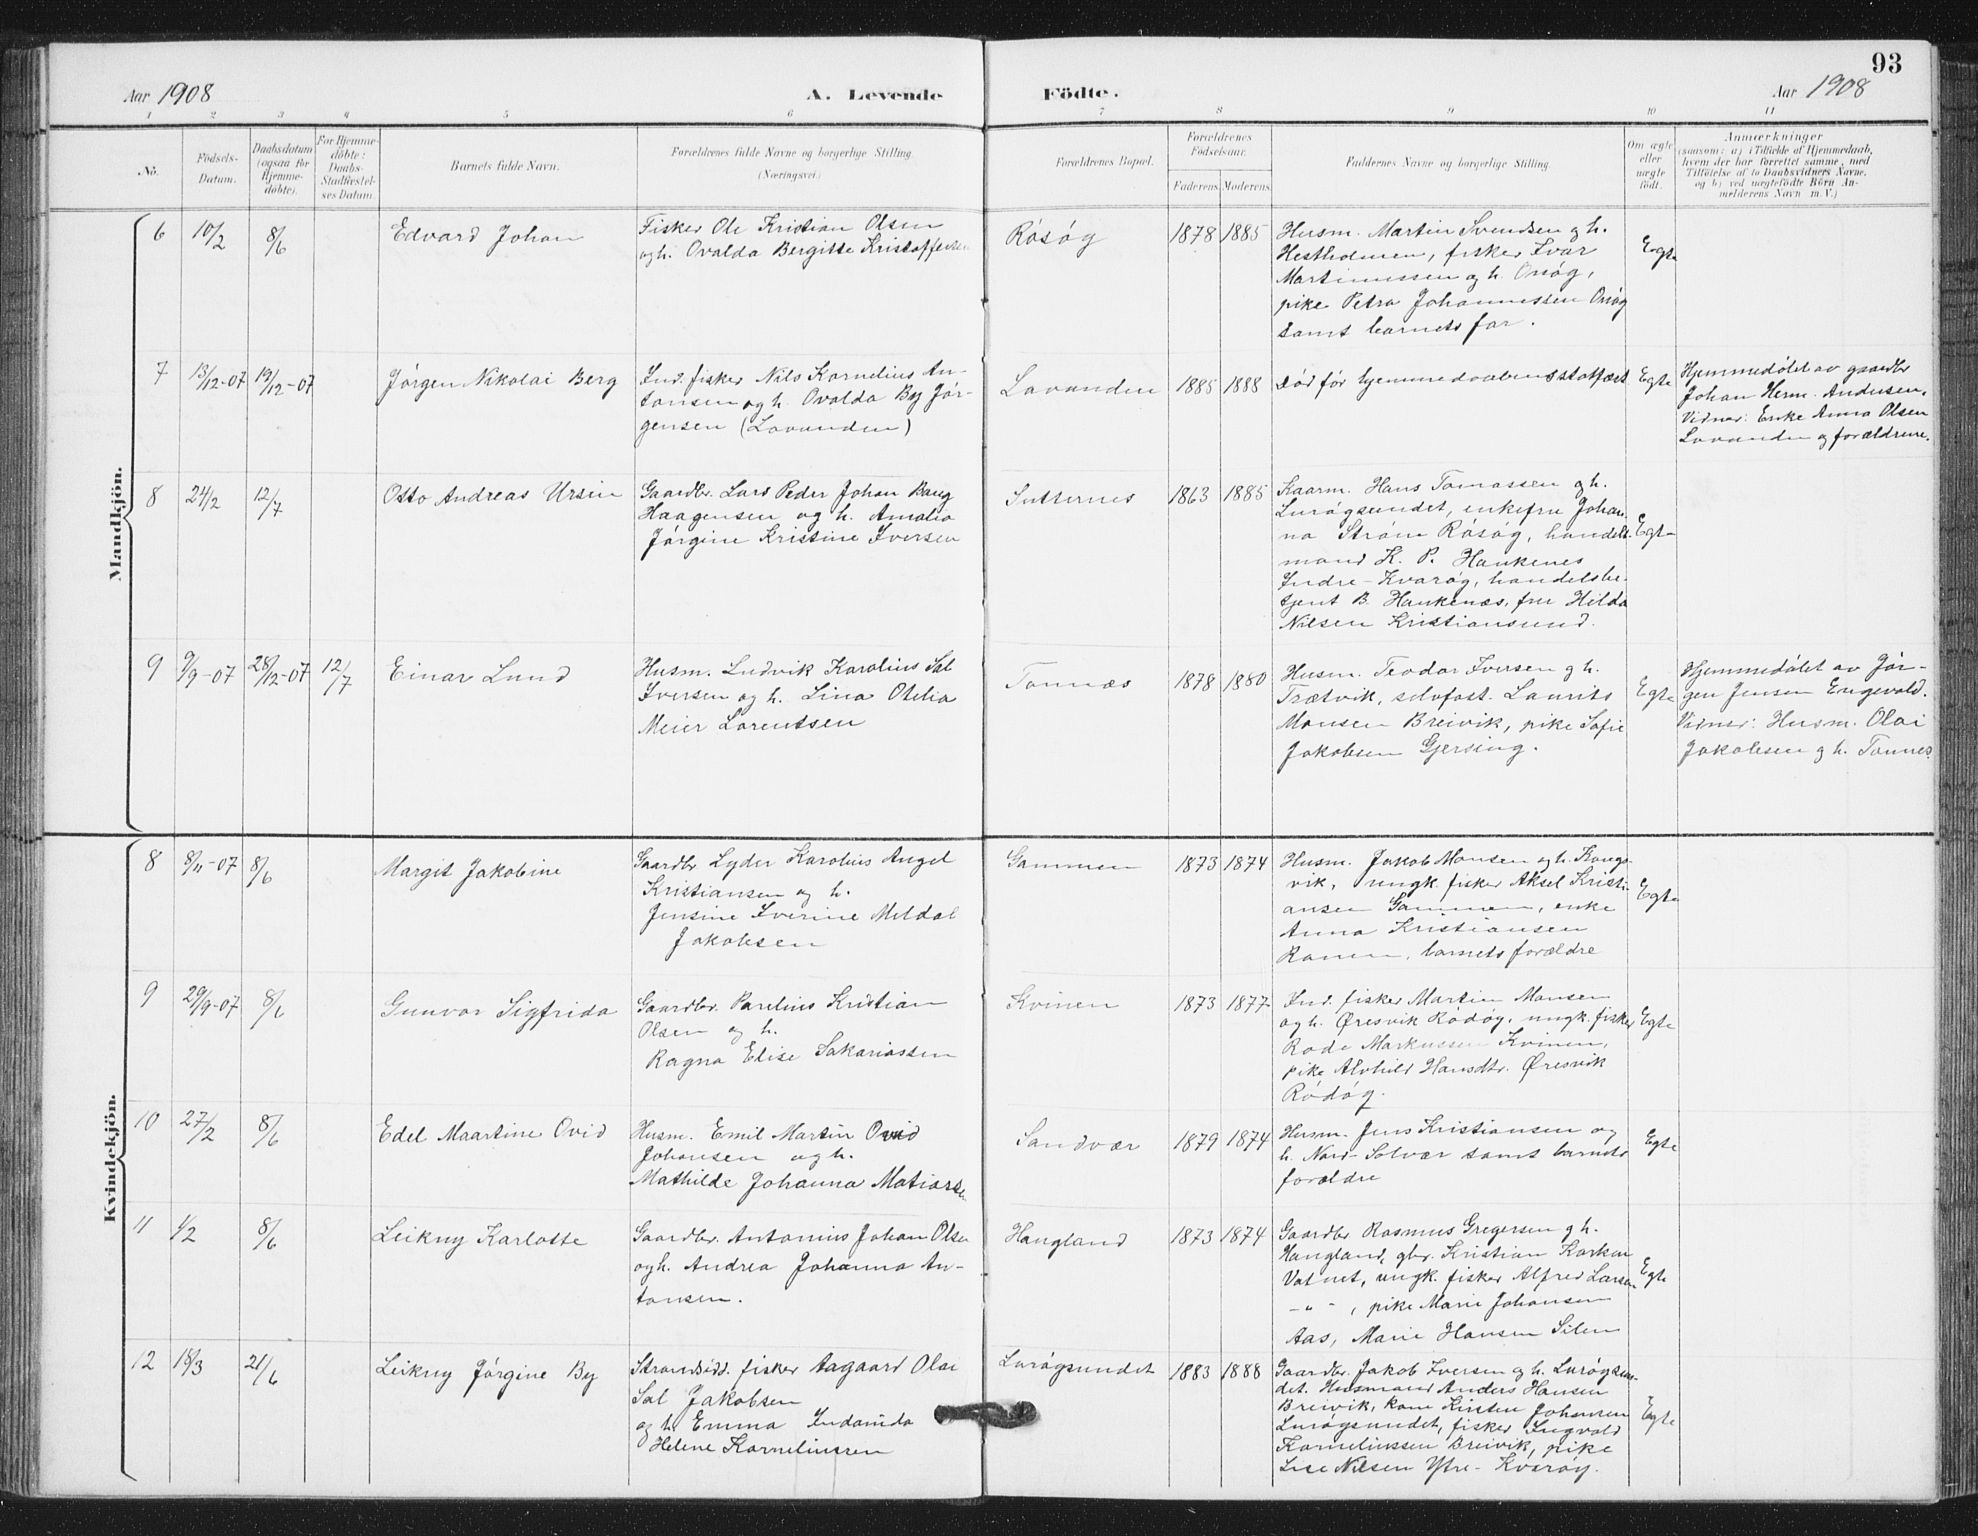 93
Aar 1908
A. Levende
Födte.
Aar 1908
1 2 3 4 5 6 7 8 9 10 11
No.
Födsels-
Datum.
Daabsdatum
(ogsaa for
Hjemme-
döbte).
For Hjemme-
döbte:
Daabs-
Stadfæstel-
ses Datum.
Barnets fulde Navn.
Forældrenes fulde Navne og borgerlige Stilling.
(Næringsvei.)
Forældrenes Bopæl.
Forældrenes
Födselsaar.
Faderens. Moderens.
Faddernes Navne og borgerlige Stilling.
Om ægte
eller
uægte
födt.
Anmærkninger
(saasom: a) i Tilfælde af Hjemmedaab,
hvem der har forrettet samme, med
Tilföielse af to Daabsvidners Navne,
og b) ved uægtefödte Börn An-
melderens Navn m. V.)
Mandkjön.
6 10/2 8/6 Edvard Johan
Fisker Ole Kristian Olsen
og h. Ovalda Bergitte Kristoffersen
Råsøg 1878 1885
Husm. Martin Svendsen og h.
Hestholmen, fisker Ivar
Martinussen og h. Onøg,
pike Petra Johannessen Onøg
samt barnets far.
Egte
7 13/12-07 19/12-07 Jørgen Nikolai Berg
Ind. fisker Nils Kornelius An-
tonsen og h. Ovalda By Jør-
gensen (Lovunden)
Lovunden 1885 1888
Død før hjemmedaaben stadfæst
Egte
Hjemmedøbt av gaardbr
Johan Herm. Andersen.
Vidner: Enke Anna Olsen
Lovunden og forældrene.
8 24/2 12/7 Otto Andreas Ursin
Gaardbr. Lars Peder Johan Bang
Haagensen og h. Amalia
Jørgine Kristine Iversen
Sutternes 1863 1885
Kaarm. Hans Tomassen og h.
Lurøgsundet, enkefru Johan-
na Strøm Råsøg, handels-
mand K. P. Haukenes
Indre-Kvarøg, handelsbe-
tjent B. Haukenæs, fru Hilda
Nilsen Kristiansund.
Egte
9 9/9-07 28/12-07 12/7 Einar Lund
Husm. Ludvik Karolius Sal
Iversen og h. Lina Otelia
Meier Lorentsen
Tonnæs 1878 1880
Husm. Teodor Iversen og h.
Trætvik, selvfost. Laurits
Monsen Breivik, pike Sofie
Jakobsen Gjersing.
Egte
Hjemmedøbt av Jør-
gen Jensen Engevold.
Vidner: Husm. Olai
Jakobsen og h. Tonnes.
Kvindekjön.
8 8/11-07 8/6 Margit Jakobine
Gaardbr Lyder Karolius Angel
Kristiansen og h.
Jensine Iverine Meldal
Jakobsen
Gammen 1873 1874
Husm. Jakob Monsen og h. Kongs-
vik, ungk. fisker Aksel Kristi-
ansen Gammen, enke
Anna Kristiansen
Ranen, barnets forældre
Egte
9 29/9-07 8/6 Gunvor Sigfrida
Gaardbr. Parelius Kristian
Olsen og h.
Ragna Elise Sakariassen
Kvinen 1873 1877
Ind. fisker Martin Monsen
og h. Øresvik Rødøg, ungk. fisker
Rode Markussen Kvinen,
pike Alvhild Hansdtr. Øresvik
Rødøg.
Egte
10 27/2 8/6 Edel Maartine Ovid
Husm. Emil Martin Ovid
Johansen og h.
Mathilde Johanna Matiassen
Sandvær 1879 1874
Husm. Jens Kristiansen og
h. Nord-Solvær samt barnets
forældre
Egte
11 1/2 8/6 Leikny Karlotte
Gaardbr. Antonius Johan Olsen
og h. Andrea Johanna An-
tonsen.
Haugland 1873 1874
Gaardbr Rasmus Gregersen og h.
Haugland, gbr. Kristian
Vatnet, ungk. fisker Alfred Larsen
- " - , pike Marie Johansen
Aas, Marie Hansen Silen
Egte
12 18/3 21/6 Leikny Jørgine By
Strandsidd. fisker Aagaard Olai
Sal Jakobsen
og h. Emma Indamida
Helene Korneliussen
Lurøgsundet 1883 1888
Gaardbr. Jakob Iversen og h. Lurøgsun-
det. Husmand Anders Hansen
Breivik, kone Kirsten Johansen
Lurøgsundet, fisker Ingvald
Korneliussen Breivik, pike
Lise Nilsen Ytre-Kvarøg.
Egte